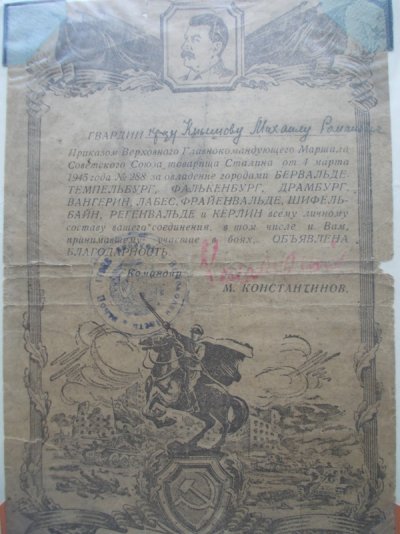 ГВАРДИИ Михаилу
Приказом Верховного Главнокомандующего Маршала
Советского Союза товарища Сталина от 4 марта
1945 года № 288 за овладение городами БЕРВАЛЬДЕ,
ТЕМПЕЛЬБУРГ, ФАЛЬКЕНБУРГ, ДРАМБУРГ,
ВАНГЕРИН, ЛАБЕС, ФРАЙЕНВАЛЬДЕ, ШИФЕЛЬ-
БАЙН, РЕГЕНВАЛЬДЕ и КЕРЛИН всему личному
составу вашего соединения, в том числе и Вам,
принимавшему участие в боях, ОБЪЯВЛЕНА
БЛАГОДАРНОСТЬ.
Командир
М. КОНСТАНТИНОВ.